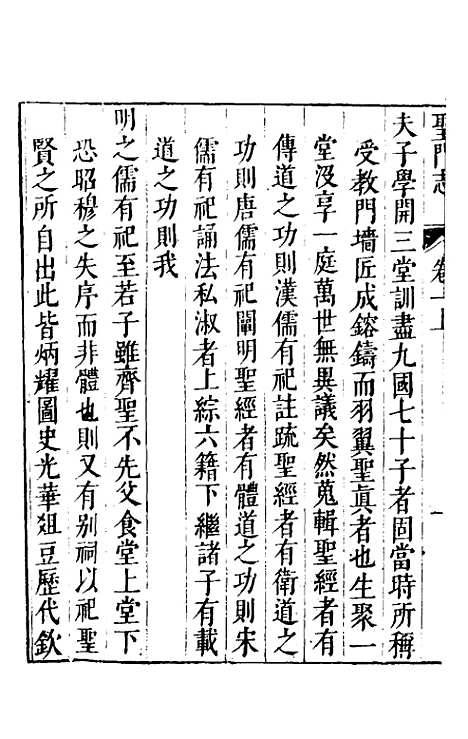 聖門志 卷一上 一
夫子學開三堂訓盡九國七十子者固當時所稱
受教門墻匠成鎔鑄而羽翼聖眞者也生聚一
堂沒享一庭萬世無異議矣然蒐輯聖經者有
傳道之功則漢儒有祀註疏聖經者有衛道之
功則唐儒有祀闡明聖經者有體道之功則宋
儒有祀誦法私淑者上綜六籍下繼諸子有載
道之功則我
明之儒有祀至若子雖齊聖不先父食堂上堂下
恐昭穆之失序而非體也則又有别祠以祀聖
賢之所自出此皆炳耀圖史光華俎豆歷代欽